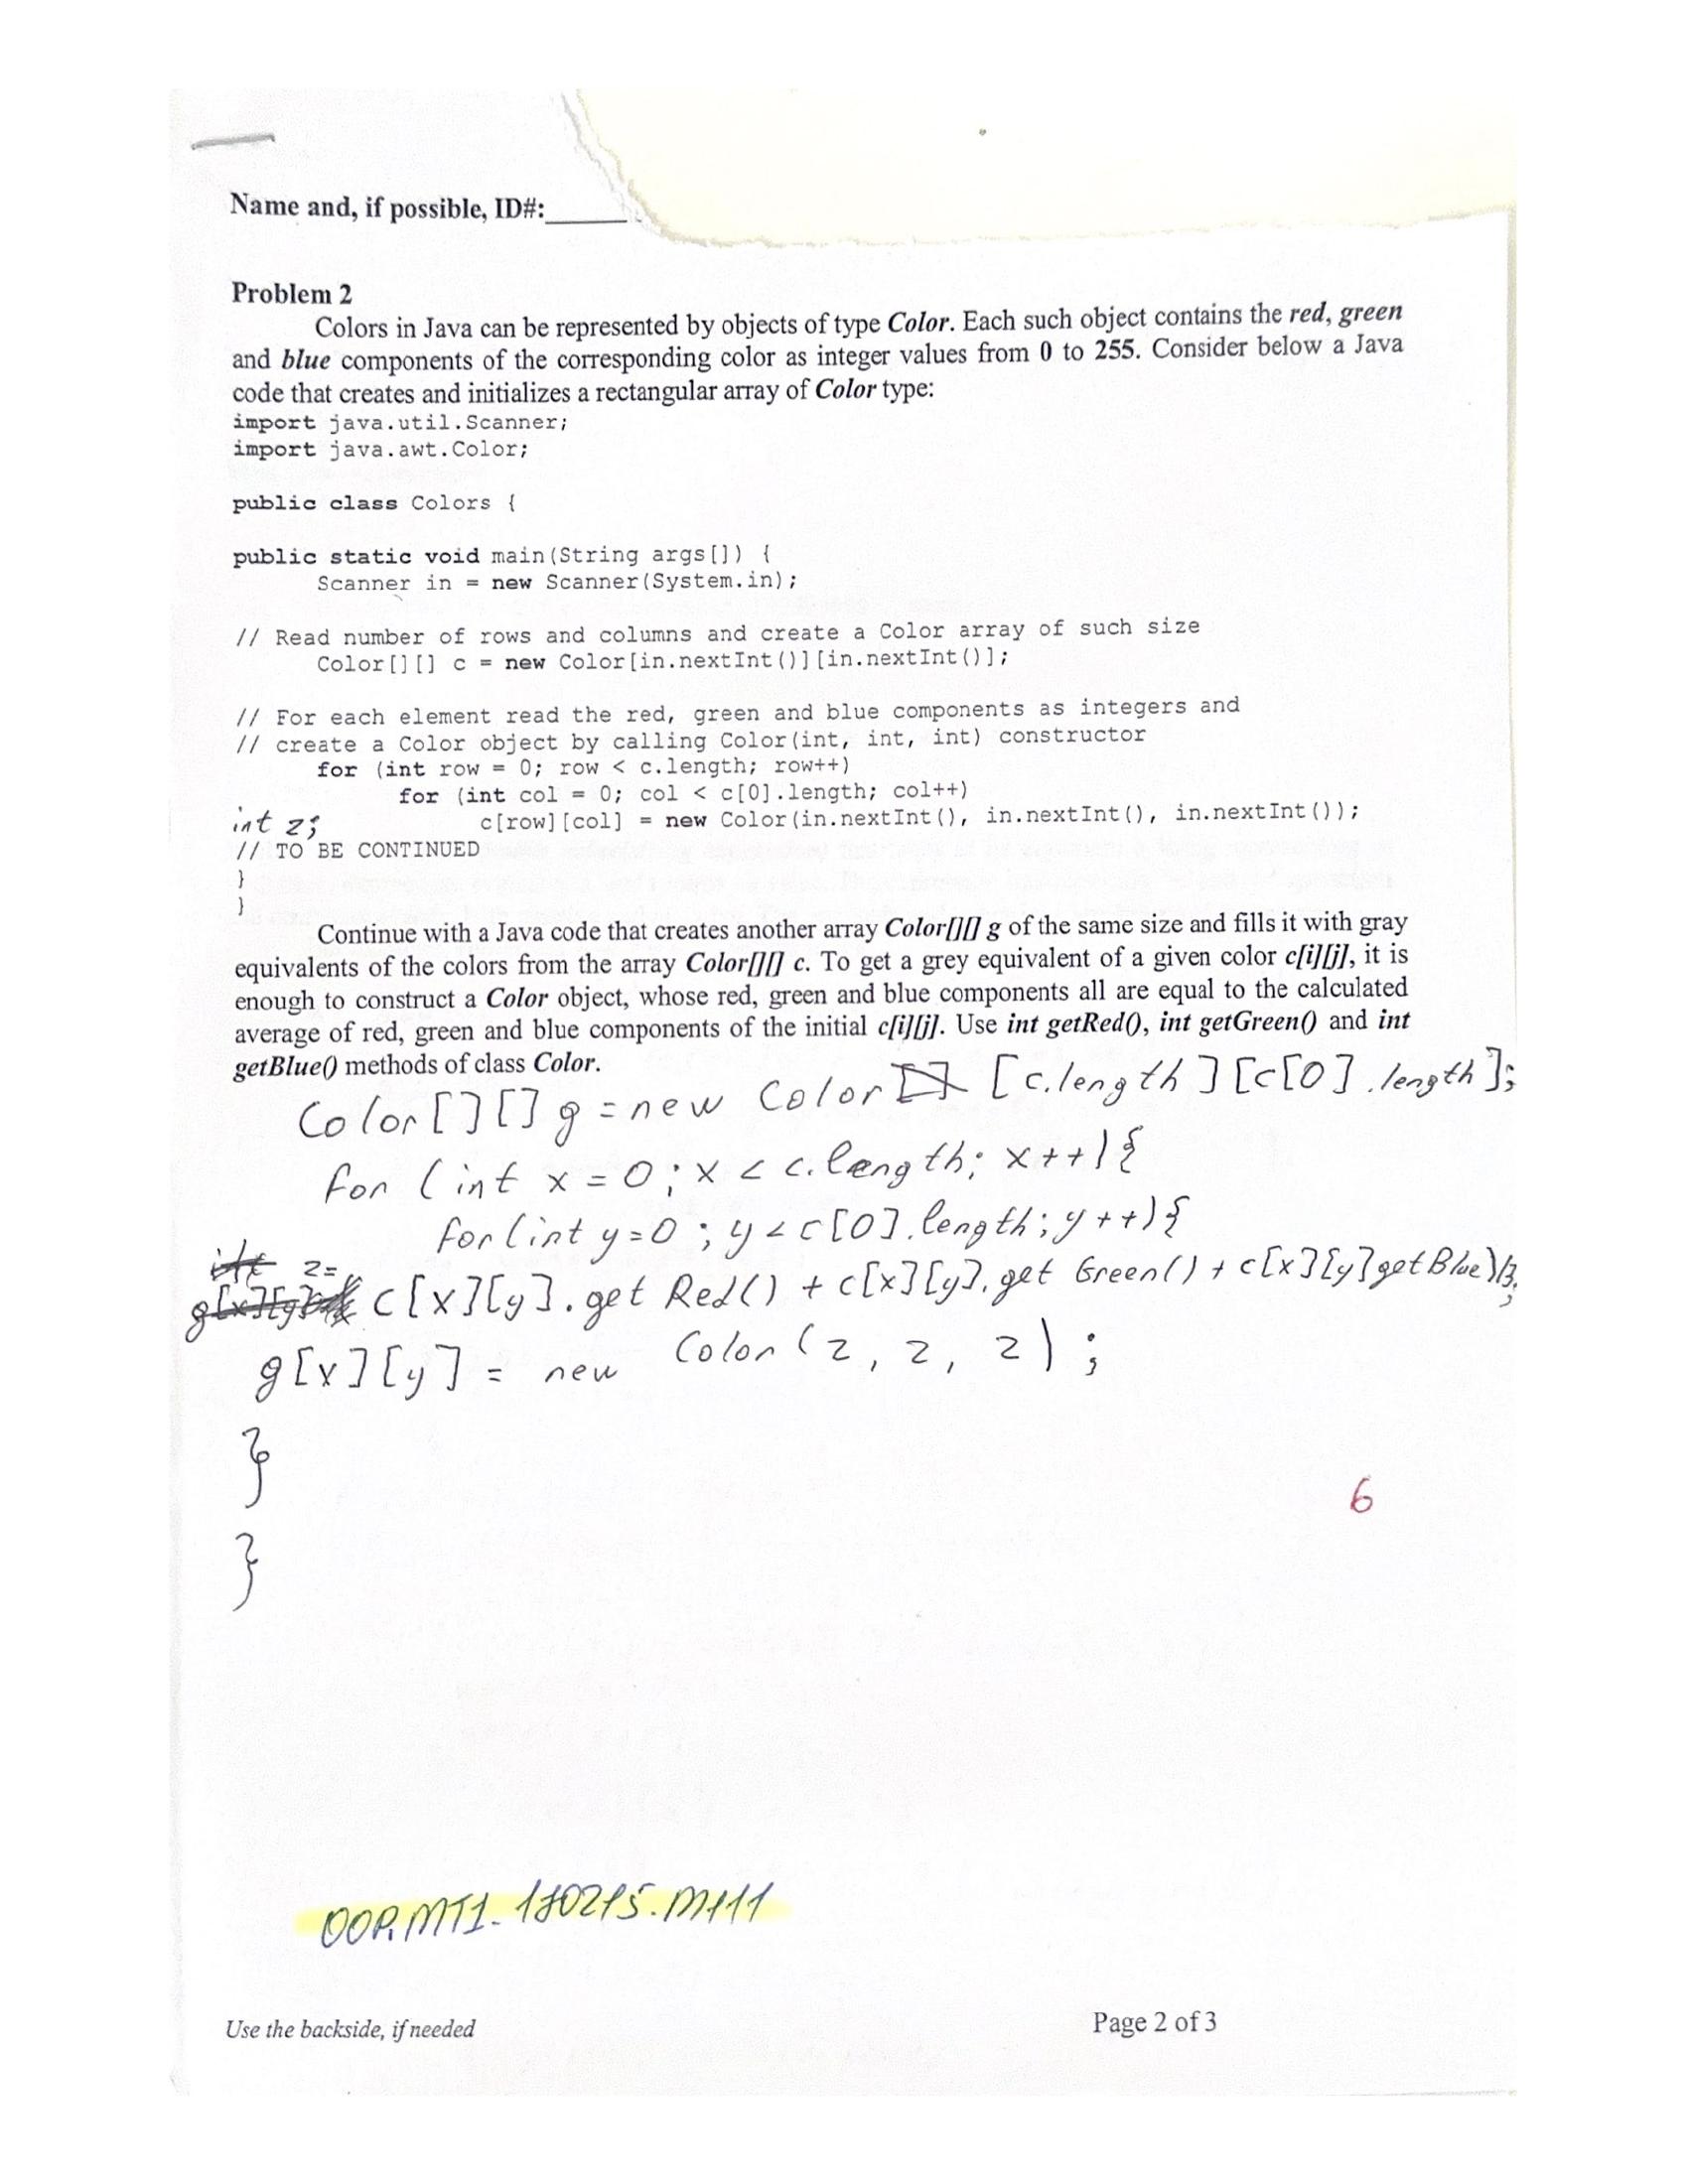 Name and, if possible, ID#:______
Problem 2
Colors in Java can be represented by objects of type Color. Each such object contains the red, green
and blue components of the corresponding color as integer values from 0 to 255. Consider below a Java
code that creates and initializes a rectangular array of Color type:
import java.util.Scanner;
import java.awt.Color;
public class Colors {
public static void main(String args[]) {
Scanner in = new Scanner(System.in);
// Read number of rows and columns and create a Color array of such size
Color[][] c = new Color[in.nextInt()][in.nextInt()];
// For each element read the red, green and blue components as integers and
// create a Color object by calling Color(int, int, int) constructor
for (int row = 0; row < c.length; row++)
for (int col = 0; col < c[0].length; col++)
int z; c[row][col] = new Color(in.nextInt(), in.nextInt(), in.nextInt());
// TO BE CONTINUED
}
}
Continue with a Java code that creates another array Color[][] g of the same size and fills it with gray
equivalents of the colors from the array Color[][] c. To get a grey equivalent of a given color c[i][j], it is
enough to construct a Color object, whose red, green and blue components all are equal to the calculated
average of red, green and blue components of the initial c[i][j]. Use int getRed(), int getGreen() and int
getBlue() methods of class Color.
Color[][] g = new Color [c.length][c[0].length];
for (int x = 0; x < c.length; x++) {
for (int y = 0; y < c[0].length; y++) {
z = (c[x][y].get Red() + c[x][y].get Green() + c[x][y]getBlue)/3;
g[x][y] = new Color (z, z, z);
}
6
}
OOP.MT1.170215.M111
Use the backside, if needed Page 2 of 3